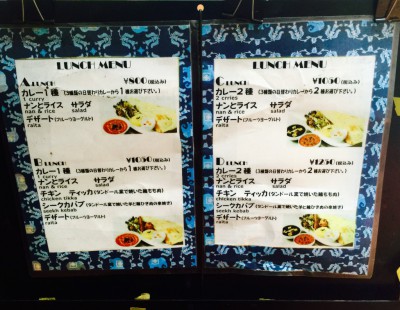 LUNCH MENU
A LUNCH ¥800(税込み)
カレー1種 (3種類の日替わりカレーから1種お選び下さい。)
1 curry
ナンとライス サラダ
nan & rice salad
デザート(フルーツヨーグルト)
raita
B LUNCH ¥1050(税込み)
カレー1種 (3種類の日替わりカレーから1種お選び下さい。)
1 curry
ナンとライス サラダ
nan & rice salad
チキン ティッカ(タンドール窯で焼いた鶏もも肉)
chicken tikka
シークカバブ(タンドール窯で焼いた羊と鶏ひき肉の串焼き)
seekh kebab
デザート(フルーツヨーグルト)
raita
LUNCH MENU
C LUNCH ¥1050(税込み)
カレー2種 (3種類の日替わりカレーから2種お選び下さい。)
2 crries
ナンとライス サラダ
nan & rice salad
デザート(フルーツヨーグルト)
raita
D LUNCH ¥1250(税込み)
カレー2種 (3種類の日替わりカレーから2種お選び下さい。)
2 crries
ナンとライス サラダ
nan & rice salad
チキン ティッカ(タンドール窯で焼いた鶏もも肉)
chicken tikka
シークカバブ(タンドール窯で焼いた羊と鶏ひき肉の串焼き)
seekh kebab
デザート(フルーツヨーグルト)
raita